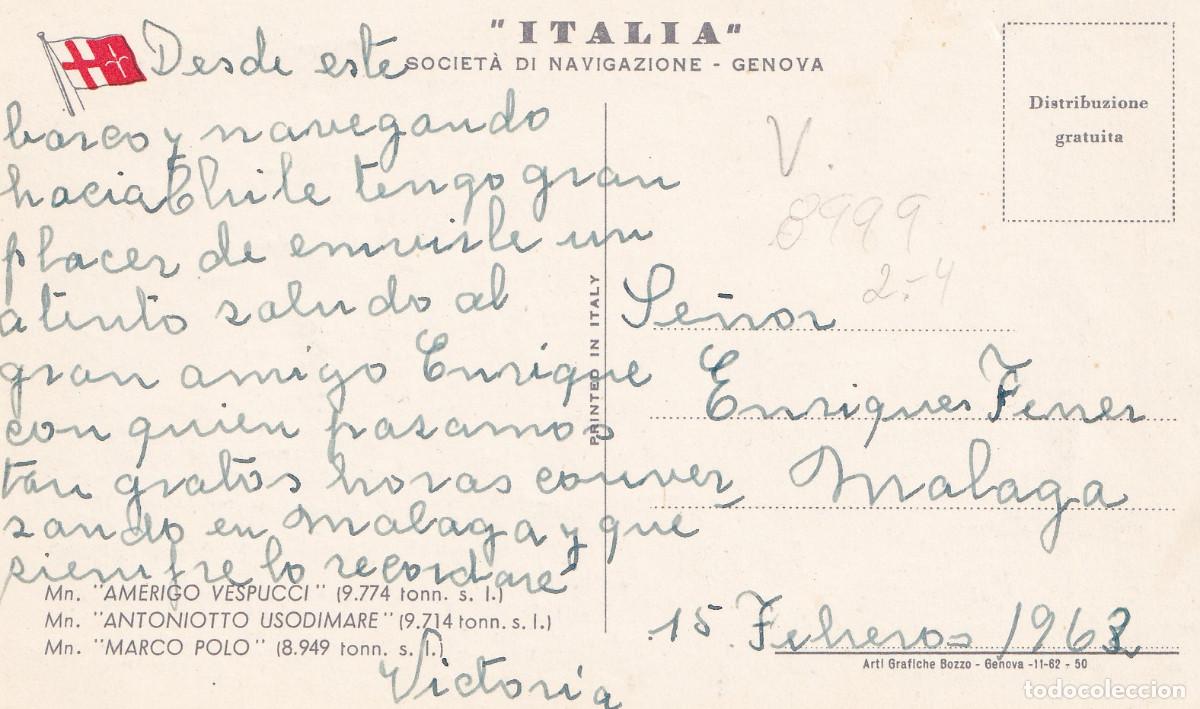 "ITALIA"
SOCIETÀ DI NAVIGAZIONE - GENOVA
Distribuzione
gratuita
Desde este
barco y navegando
hacia Chile tengo gran
placer de enviarle un
atento saludo al
gran amigo Enrique
con quien pasamos
tan gratos horas conver
sando en Malaga y que
siempre lo recordare
Victoria
Mn. "AMERIGO VESPUCCI" (9.774 tonn. s. l.)
Mn. "ANTONIOTTO USODIMARE" (9.714 tonn. s. l.)
Mn. "MARCO POLO" (8.949 tonn. s. l.)
PRINTED IN ITALY
V.
8999
2.-4
Señor
Enriques Fener
Malaga
15 Febrero 1963
Arti Grafiche Bozzo - Genova -11-62 - 50
todocoleccion